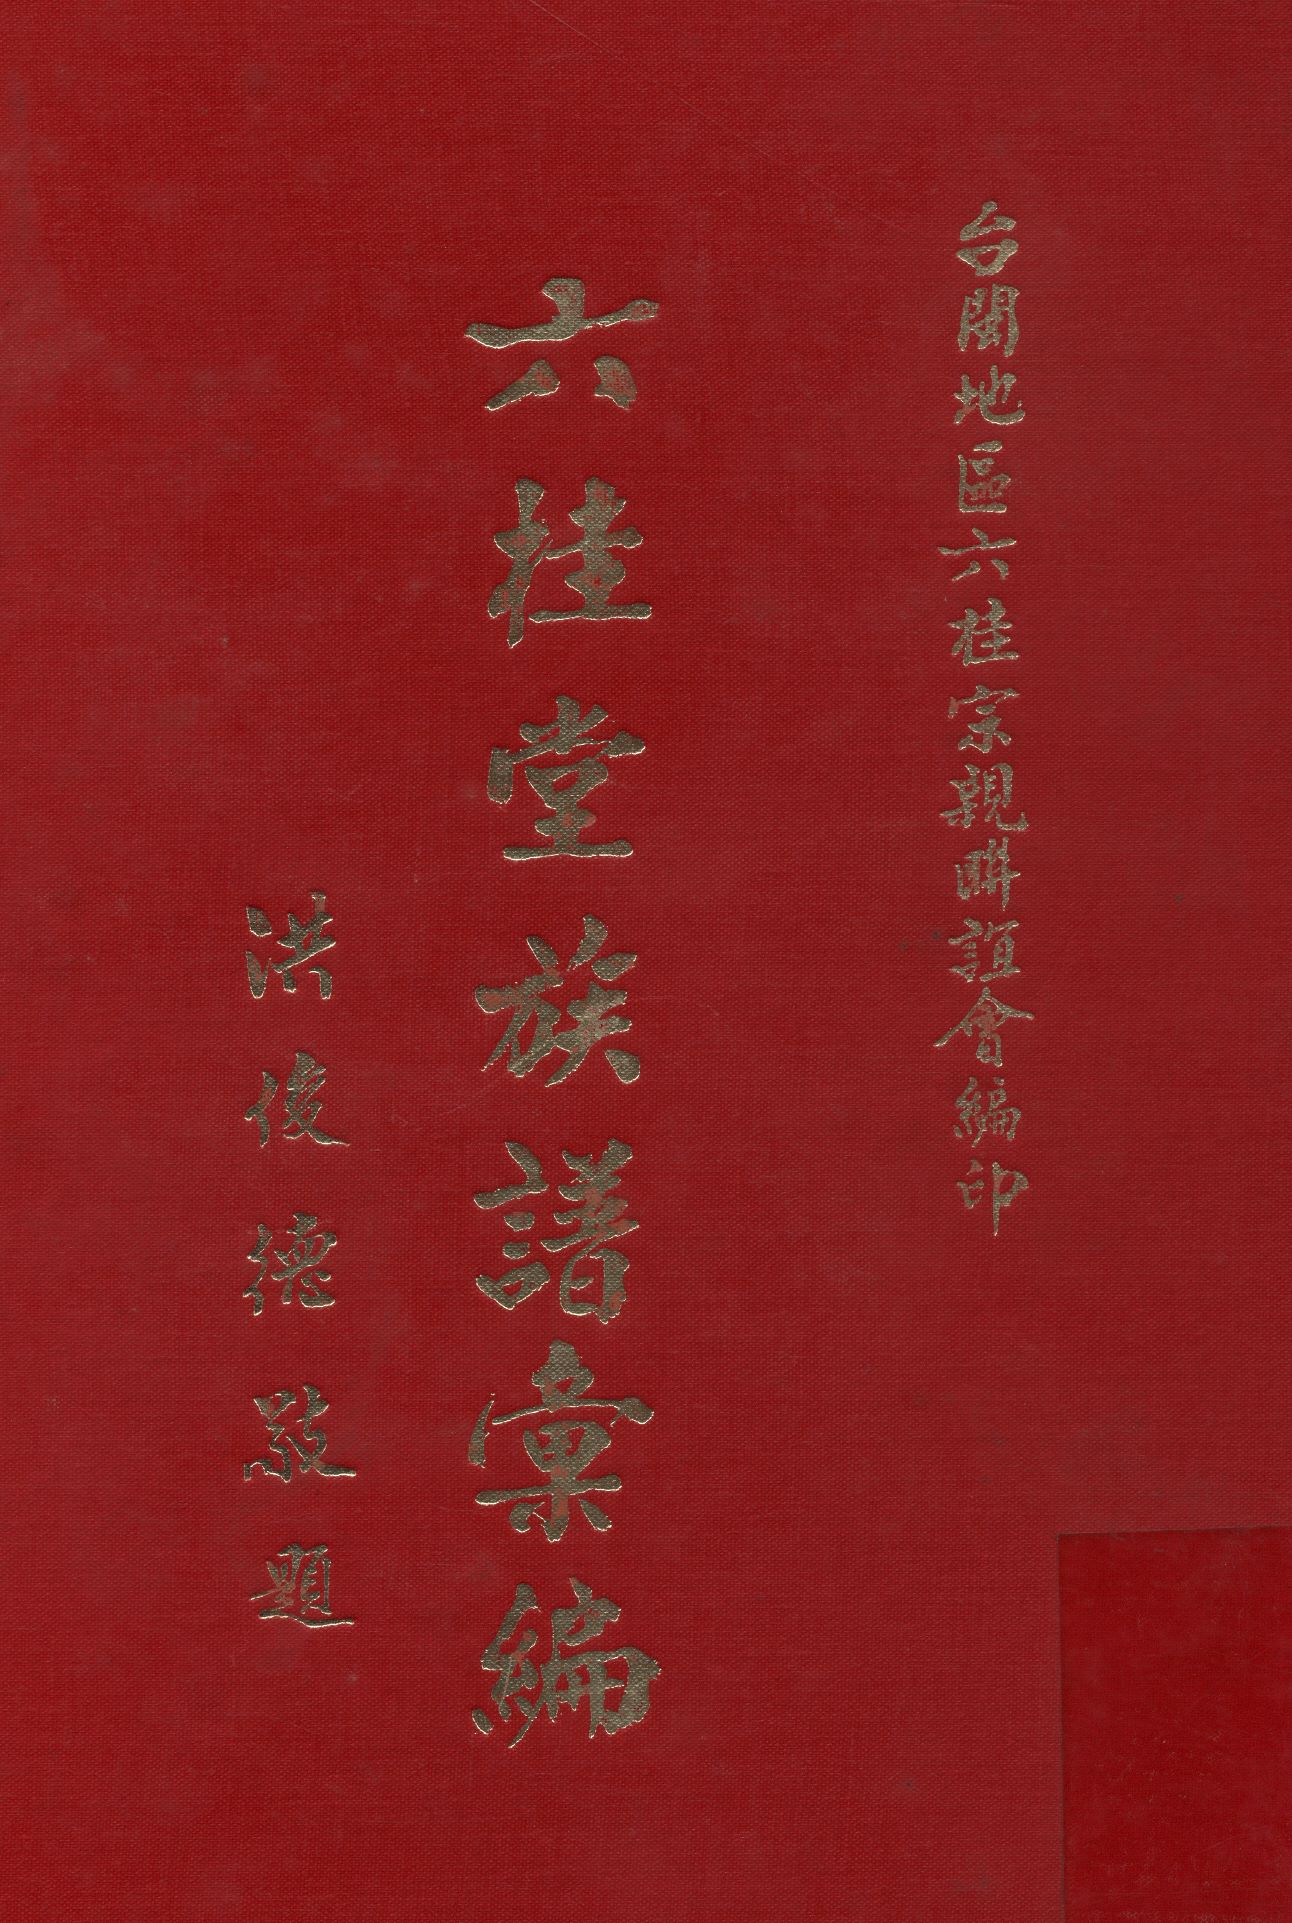 台閩地區六桂宗親聯誼會編印
六桂堂族譜彙編
洪俊德敬題